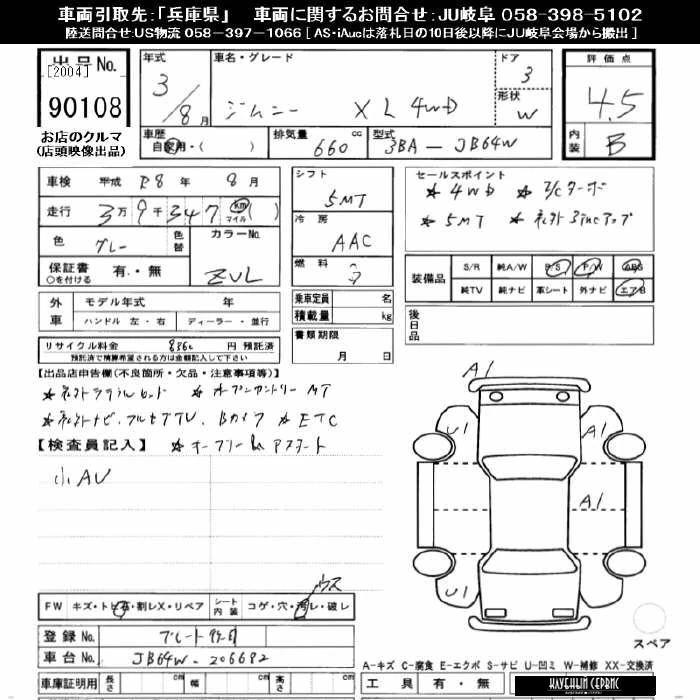 車両引取先：「兵庫県」　車両に関するお問合せ：JU岐阜 058-398-5102
陸送問合せ：US物流 058-397-1066 [ AS・iAucは落札日の10日後以降にJU岐阜会場から搬出 ]
出品No.
[2004]
90108
お店のクルマ
(店頭映像出品)
年式
3/8月
車名・グレード
ジムニー XL 4WD
ドア
3
形状
W
評価点
4.5
内装
B
車歴
自家用・( )
排気量
660 cc
型式
3BA-JB64W
車検 平成 R8年 8月
走行 3万9千347 km マイル ( )
色 グレー
色替
カラーNo.
ZVL
保証書
○を付ける
有・無
外車
モデル年式 年
ハンドル 左・右
ディーラー・並行
リサイクル料金 円 預託済
預託済で精算希望される方は金額記入して下さい
シフト
5MT
冷房
AAC
燃料
ガ
乗車定員 名
積載量 kg
書類期限
月 日
セールスポイント
☆ 4WD ☆ I/Cターボ
☆ 5MT
装備品
S/R 純A/W P/S P/W ABS
純TV 純ナビ 革シート 外ナビ エアB
後日品
【出品店申告欄(不良箇所・欠品・注意事項等)】
☆ オープンカントリー MT
ナビ、フルセグTV、Bカメラ ☆ ETC
【検査員記入】
小AU
A1
U1
A1
A1
U1
FW キズ・トビ石・割レX・リペア
シート内装 コゲ・穴・汚レ・破レ
ウス
登録No.
車台No. JB64W-206682
車庫証明用 長さ cm 幅 cm 高さ cm
スペア
A-キズ C-腐食 E-エクボ S-サビ U-凹ミ W-補修 XX-交換済
工具 有・無